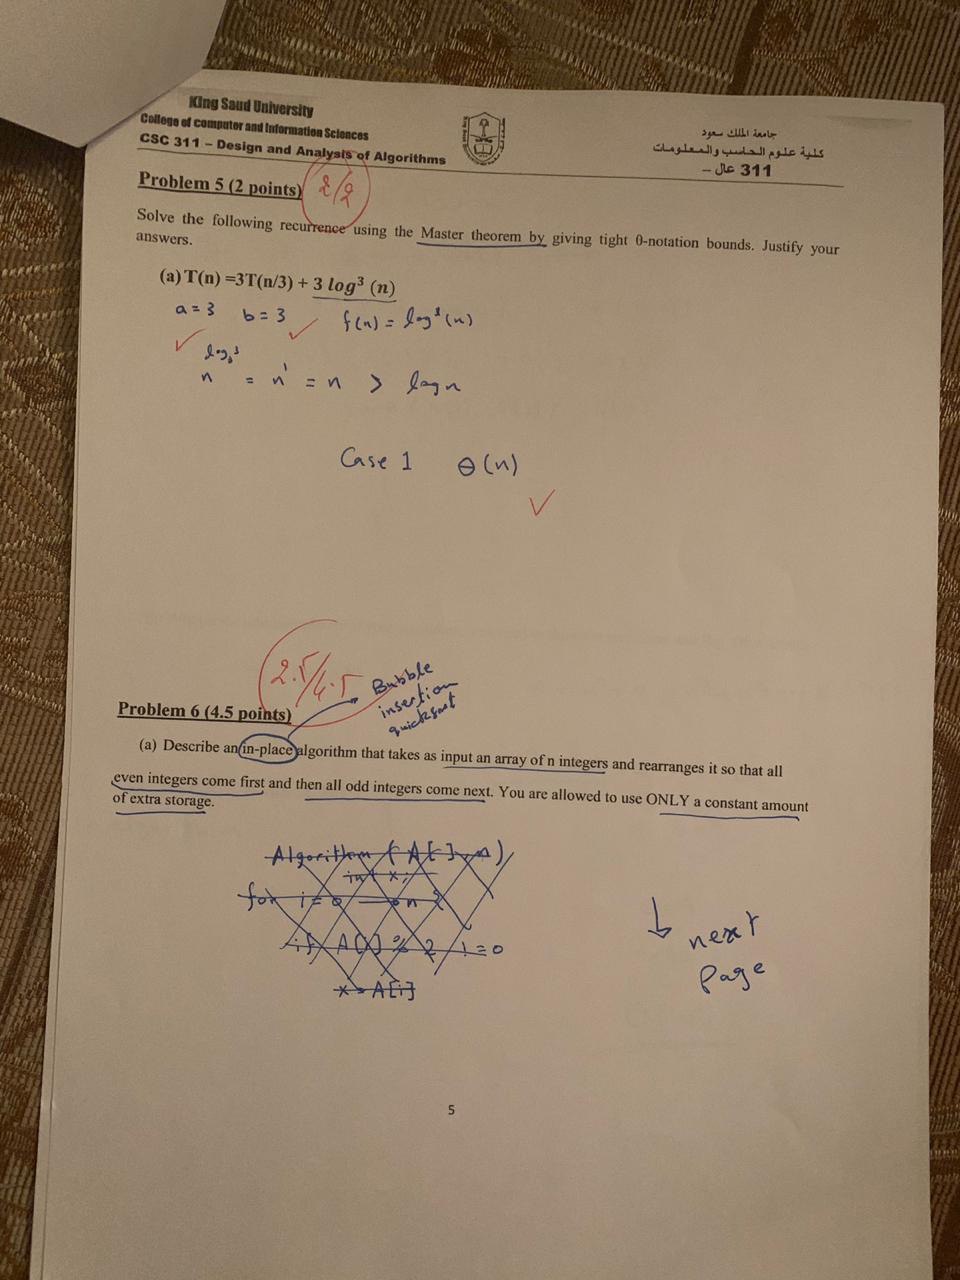 King Saud University
College of computer and Information Sciences
CSC 311 – Design and Analysis of Algorithms
جامعة الملك سعود
كلية علوم الحاسب والمعلومات
311 عال –
Problem 5 (2 points)
2/2
Solve the following recurrence using the Master theorem by giving tight θ-notation bounds. Justify your
answers.
(a) T(n) =3T(n/3) + 3 log³ (n)
a = 3 b = 3 ✓ f(n) = log³(n)
✓
n^log₃3 = n¹ = n > log n
Case 1 θ(n)
✓
2.5/4.5
Bubble
insertion
quicksort
Problem 6 (4.5 points)
(a) Describe an in-place algorithm that takes as input an array of n integers and rearranges it so that all
even integers come first and then all odd integers come next. You are allowed to use ONLY a constant amount
of extra storage.
Algorithm ( A[ ], n )
int x;
for i = 0 → n {
if A[i] % 2 ! = 0
x = A[i]
↓ next
page
5